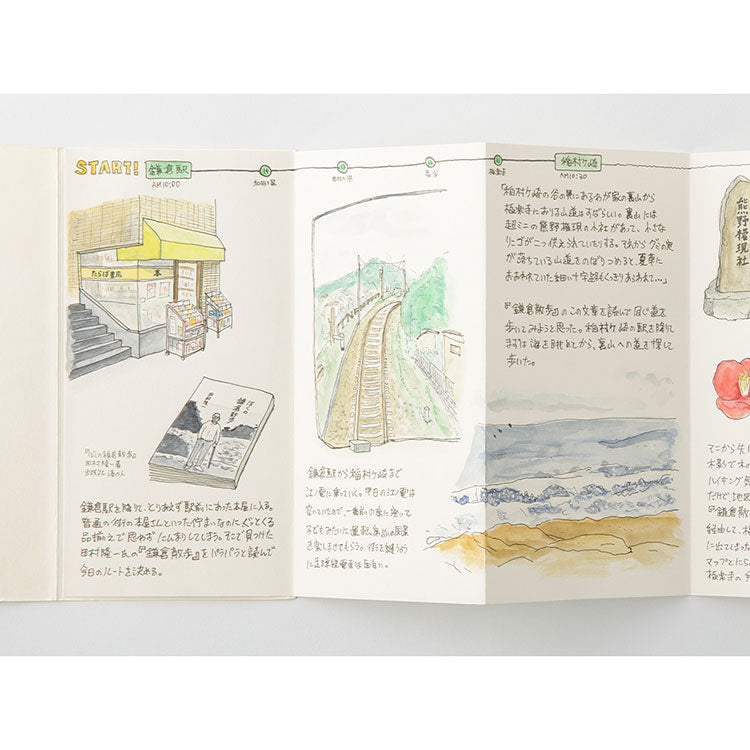 START! 鎌倉駅
AM10:00
和田塚
由比ヶ浜
長谷
極楽寺
稲村ヶ崎
AM10:30
たらば書房 本
ぼくの
鎌倉散歩
田村隆一
『ぼくの鎌倉散歩』
田村隆一著
出版社 港の人
鎌倉駅を降りて、とりあえず駅前にあった本屋に入る。
普通の街の本屋さんといった佇まいなのにぐっとくる
品揃えで思わずにんまりしてしまう。そこで見つけた
田村隆一氏の『鎌倉散歩』をパラパラと読んで
今日のルートを決める。
鎌倉駅から稲村ヶ崎まで
江ノ電に乗っていく。平日の江ノ電は
空いていたので、一番前の席に座って
子どもみたいに運転席からの風景
を楽しませてもらう。街を縫うように
走る
電車は面白い。
「稲村ヶ崎の谷の奥にあるわが家の裏山から
極楽寺におりる山道はすばらしい。裏山には
超ミニの熊野権現の小社があって、小さな
が二つ供えられていたりする。
の実
が落ちている山道をのぼりつめると、夏草に
おおわれていた細い十字路もくっきりあらわれて…」
『鎌倉散歩』のこの文章を読んで同じ道を
歩いてみようと思った。稲村ヶ崎の駅を降りて
まずは海を眺めてから、裏山への道を探して
歩いた。
熊野権現社
そこから
木彫で
ハイキング
だけど地図
『鎌倉散
経由して、
に出てはっ
マップとにら
極楽寺の